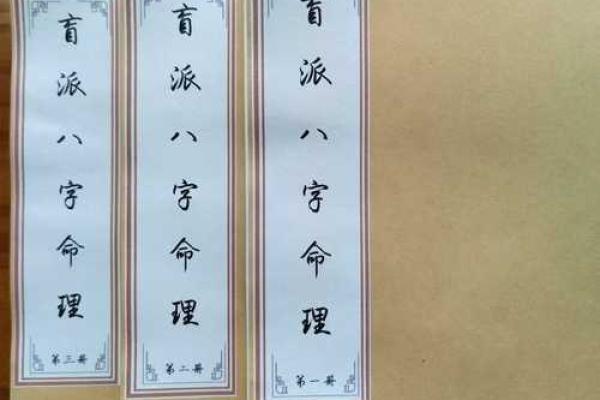 盲派八字命理
第三册
盲派八字命理
第二册
盲派八字命理
第一册